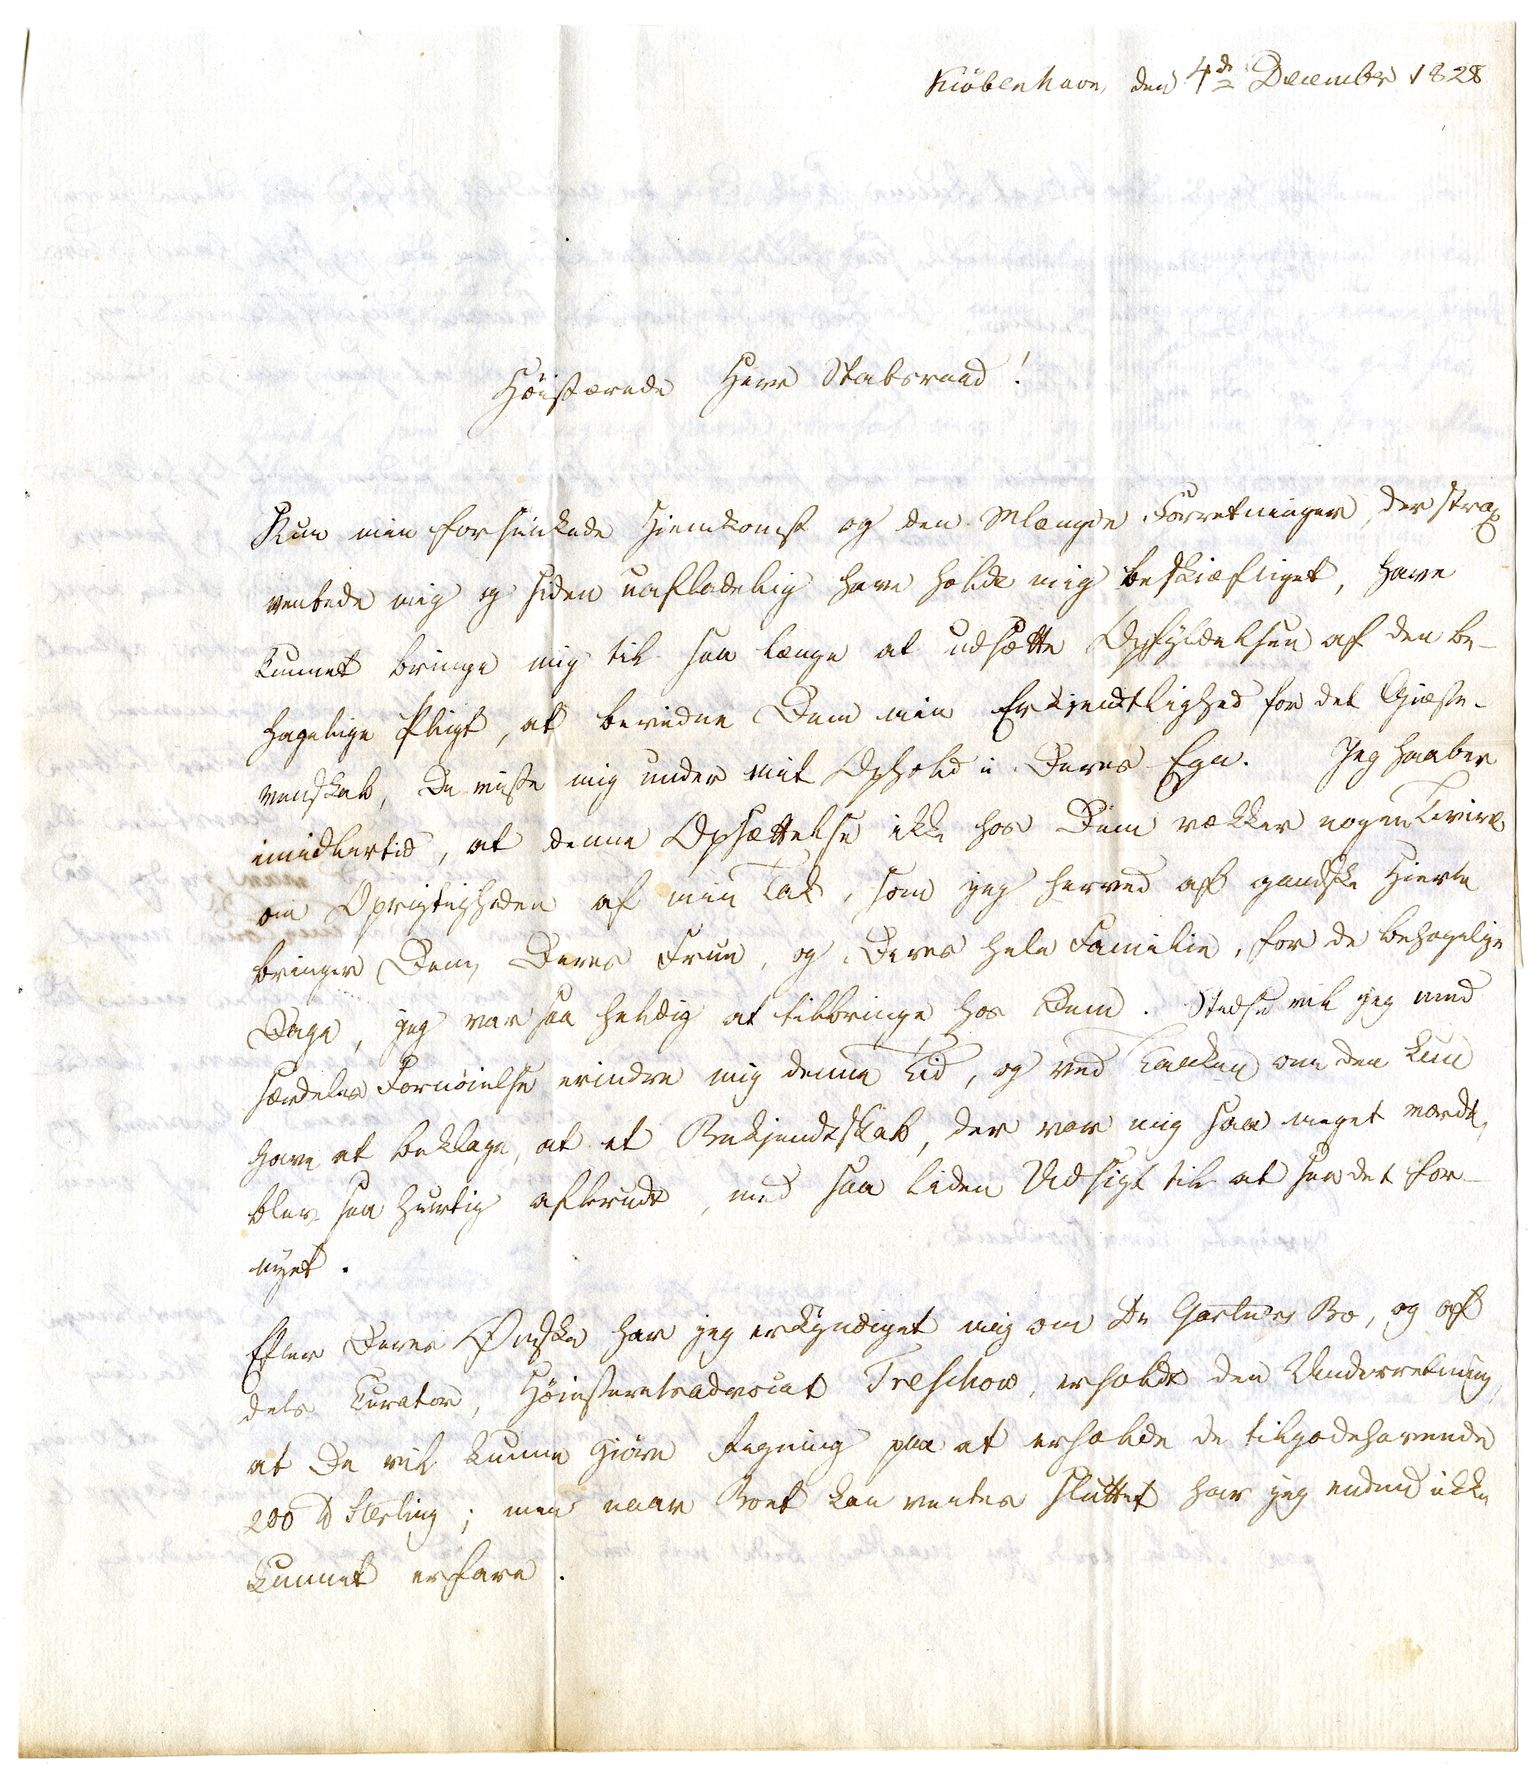 Kiöbenhavn, den 4de December 1828
Høistærede Herr Etatsraad!
Kun min forsinkede Hjemkomst og den Mængde Forretninger, der strax
ventede mig og siden uafladelig have holdt mig beskiæftiget, have
kunnet bringe mig til saa længe at udsætte Opfyldelsen af den be-
hagelige Pligt, at bevidne Dem min Erkjendtlighed for det Giæst-
venskab, De viiste mig under mit Ophold i Deres Egn. Jeg haaber
imidlertid, at denne Opsættelse ikke hos Dem vækker nogen Tvivl
om Oprigtigheden af min Tak, som jeg herved af gandske Hierte
bringer Dem, Deres Frue, og Deres hele Familie, for de behagelige
Dage, jeg var saa heldig at tilbringe hos Dem. Stedse vil jeg med
særdeles Fornøielse erindre mig denne Tid, og ved Tanken om den kun
have at beklage, at et Bekjendtskab, der var mig saa meget værdt,
blev saa hurtig afbrudt, med saa liden Udsigt til at see det for-
nyet.
Efter Deres Ønske har jeg erkyndiget mig om Dr Gartners Bo, og af
dets Curator, Höiesteretsadvocat Treschow, erholdt den Underretning,
at De vil kunne giøre Regning paa at erholde de tilgodehavende
200 ₶ Sterling; men naar Boet kan ventes sluttet har jeg endnu ikke
kunnet erfare.